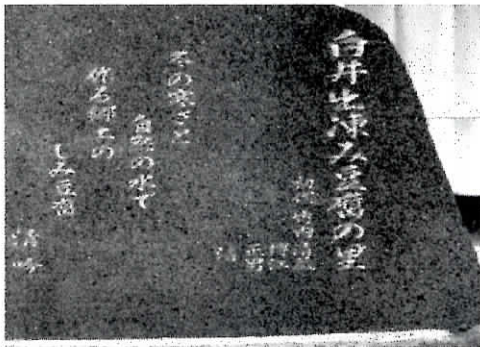 白井出凍み豆腐の里
冬の寒さと
自然の水で
作る郷土の
しみ豆腐